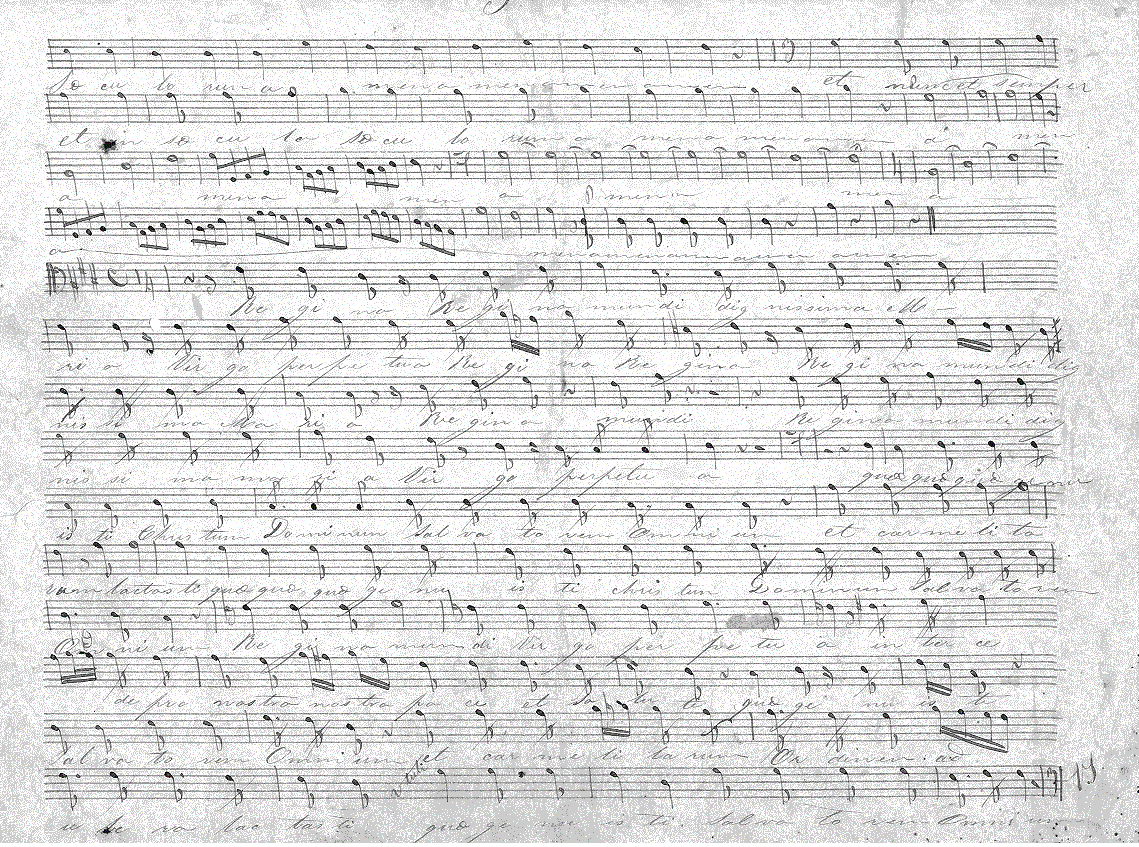 sæ cu lo rum a men a men a men amen amen et nunc et semper
et in sæ cu la sæ cu lo rum a men a men a men a men
a men a men a men a men a
a men amen amen amen amen
Re gi na Re gi na mundi dig nissima Ma
ri a Vir go perpe tua Re gi na Re gina Re gi na mundi dig
nis si ma Ma ri a Re gin a mundi Re gina mundi dig
nis si ma ma ri a Vir go perpetu a quæ quæ
is ti Chris tum Dominum Sal va to rem Omni um et carme li ta
rum lactas ti quæ quæ quæ ge nu is ti chris tum Dominum Salva to rem
Omni um Re gi na mun di Vir go per pe tu a in ter ce
de pro nostra nostra pa ce et sa lu te quæ ge nu is ti
Sal va to rem Omni um et car me li ta rum Or dinem ad
u be ra lac tas ti quæ ge nu is ti Salva to rem Omni um